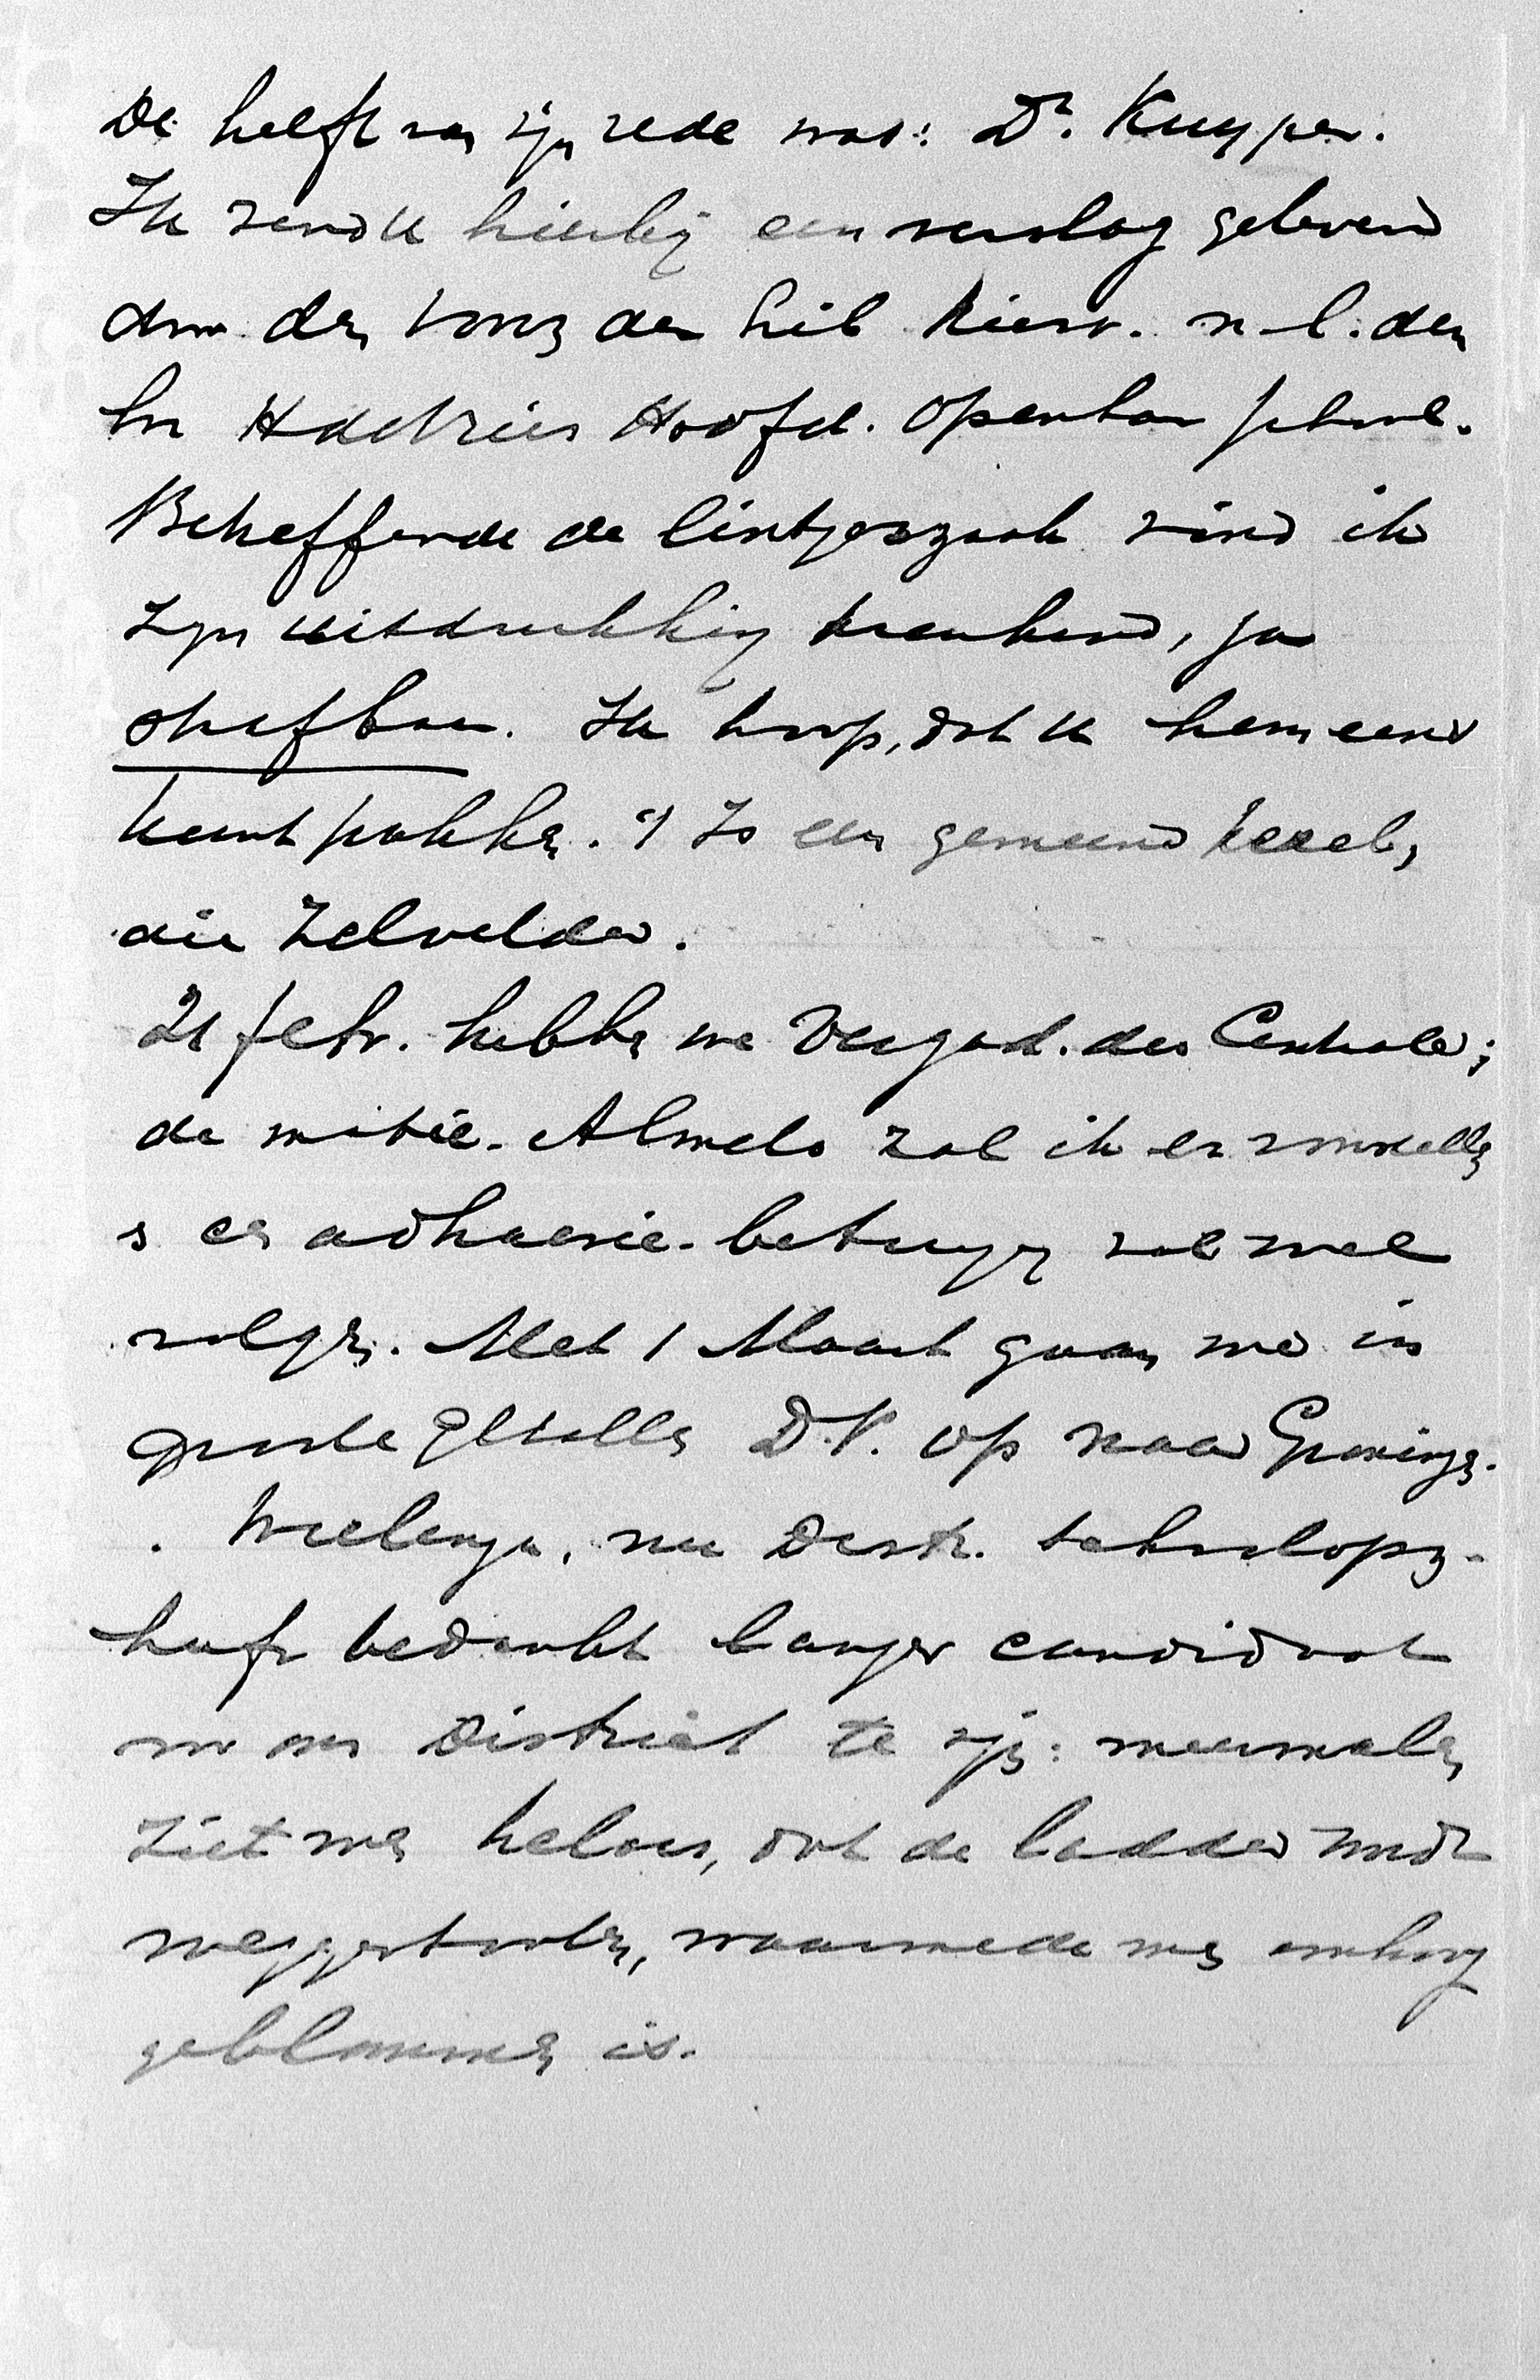 De helft van zijn rede was: Dr. Kuyper.
Ik zend U hierbij een verslag geleverd
door den voorz der Lib Kiesv. n-l. den
hr H de Vries Hoofd. Openbar school.
Betreffende de lintjeszaak vind ik
zijn uitdrukking krenkend, ja
strafbaar. Ik hoop, dat U hem eens
kunt pakken. 't Is een gemeene kerel,
die Zelvelder.
21 febr. hebben we Vergad. der Centrale;
de motie-Almelo zal ik er voorstellen
s en adhaesie-betuiging zal wel
volgen. Met 1 Maart gaan we in
groote getalle D.V. op naar Groningen.
. Wielenga, nu Distr. schoolopz.
heeft bedankt langer candidaat
voor ons District te zijn: meermalen
ziet men helaas, dat de ladder wordt
weggestooten, waarmede men omhoog
geklommen is.